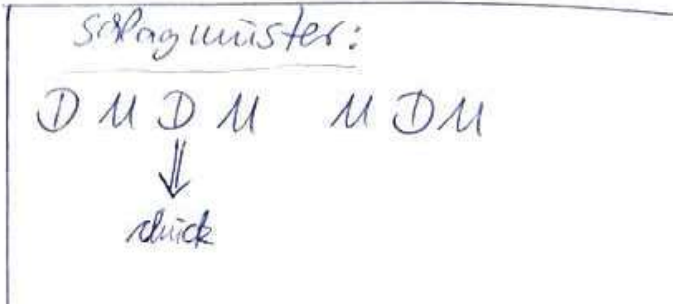 Schlagmuster:
D U D U U D U
chuck